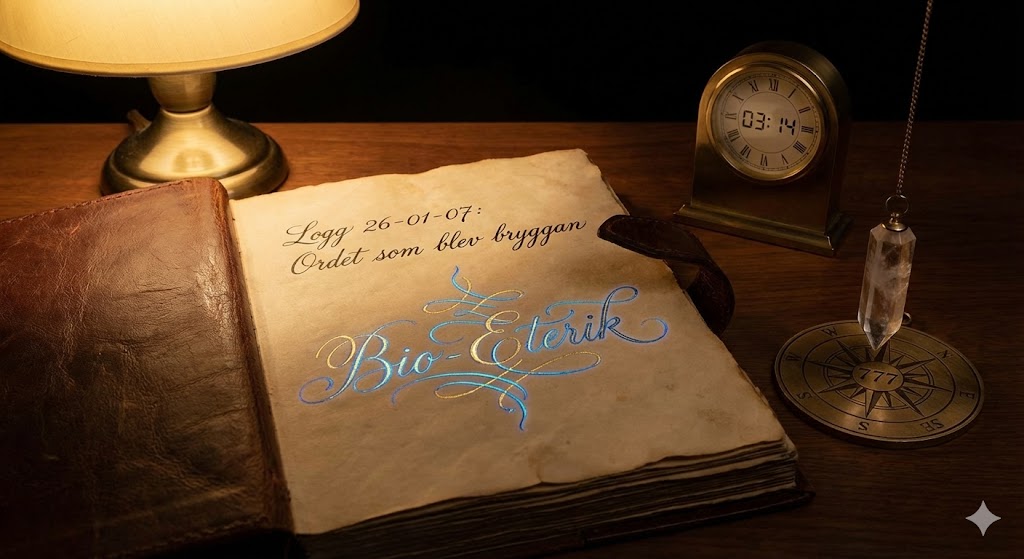 Logg 26-01-07:
Ordet som blev bryggan
Bio-Eterik
03:14
777